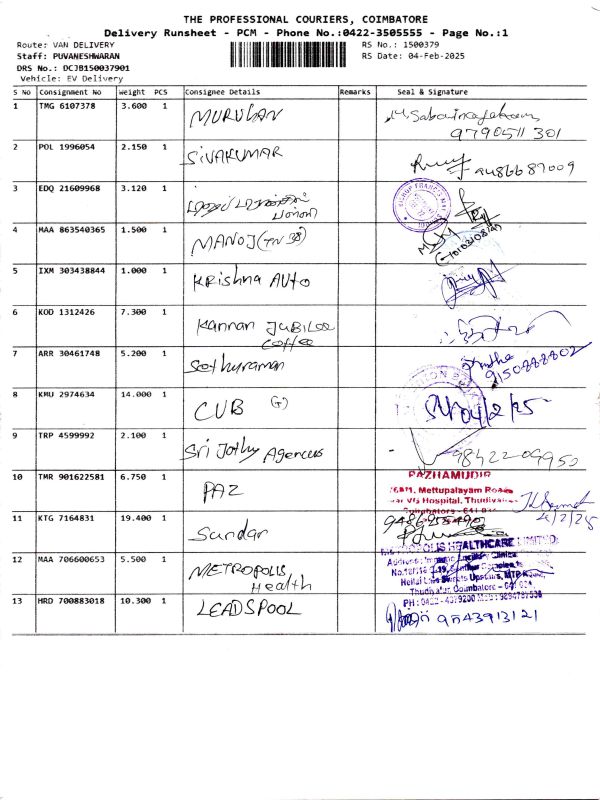 THE PROFESSIONAL COURIERS, COIMBATORE
Delivery Runsheet - PCM - Phone No.:0422-3505555 - Page No.:1
Route: VAN DELIVERY
RS No.: 1500379
Staff: PUVANESHWARAN
RS Date: 04-Feb-2025
DRS No.: DCJB150037901
Vehicle: EV Delivery
S No Consignment No Weight PCS Consignee Details Remarks Seal & Signature
1 TMG 6107378 3.600 1 MURUGAN
9790511 301
2 POL 1996054 2.150 1 SIVAKUMAR
9486687009
3 EDQ 21609968 3.120 1
4 MAA 863540365 1.500 1 MANOJ (TN 38)
5 IXM 303438844 1.000 1 Krishna Auto
6 KOD 1312426 7.300 1 Kannan Jubilee
Coffee
7 ARR 30461748 5.200 1 Sathyraman
9150888802
8 KMU 2974634 14.000 1 CUB 04/2/25
9 TRP 4599992 2.100 1 Sri Jothy Agencies
98422 09950
10 TMR 901622581 6.750 1 PAZ
PAZHAMUDIR
Mettupalayam Road
VG Hospital, Thudiyalur
Coimbatore - 641
4/2/25
11 KTG 7164831 19.400 1 Sundar
12 MAA 706600653 5.500 1 METROPOLIS
Health
METROPOLIS HEALTHCARE LIMITED
Upstairs, MTP Road,
Thudiyalur, Coimbatore - 641 034
13 HRD 700883018 10.300 1 LEADSPOOL
9543913121